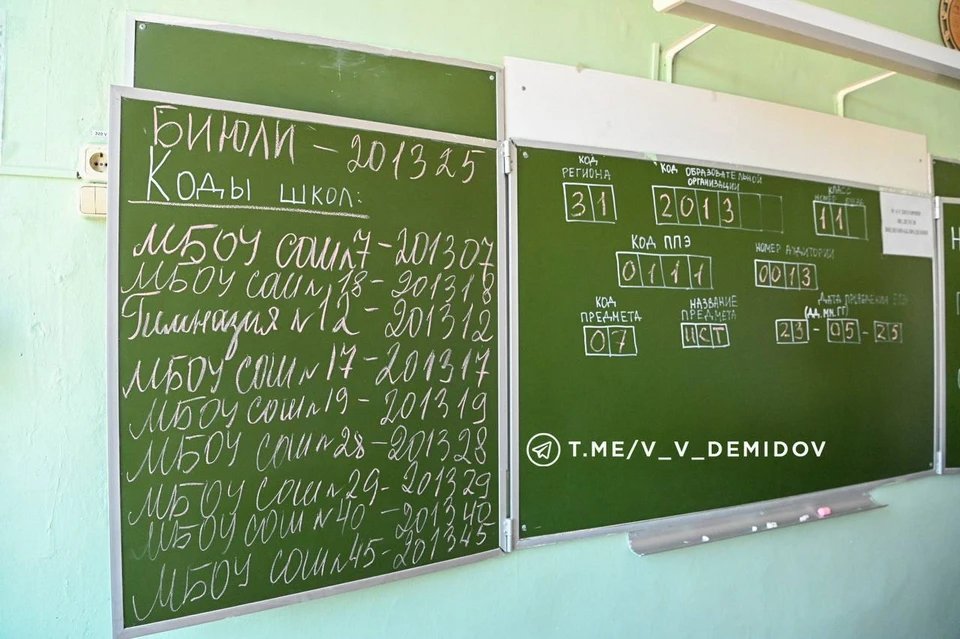 БИЮЛИ – 201325
Коды школ:
МБОУ СОШ 7 – 201307
МБОУ СОШ № 18 – 201318
Гимназия № 12 – 201312
МБОУ СОШ № 17 – 201317
МБОУ СОШ № 19 – 201319
МБОУ СОШ № 28 – 201328
МБОУ СОШ № 29 – 201329
МБОУ СОШ № 40 – 201340
МБОУ СОШ № 45 – 201345
КОД РЕГИОНА
31
КОД ОБРАЗОВАТЕЛЬНОЙ ОРГАНИЗАЦИИ
2013
КЛАСС
НОМЕР
11
КОД ППЭ
0111
НОМЕР АУДИТОРИИ
0013
КОД ПРЕДМЕТА
07
НАЗВАНИЕ ПРЕДМЕТА
ИСТ
ДАТА ПРОВЕДЕНИЯ ЕГЭ
(ДД.ММ.ГГ)
23-05-25
T.ME/V_V_DEMIDOV